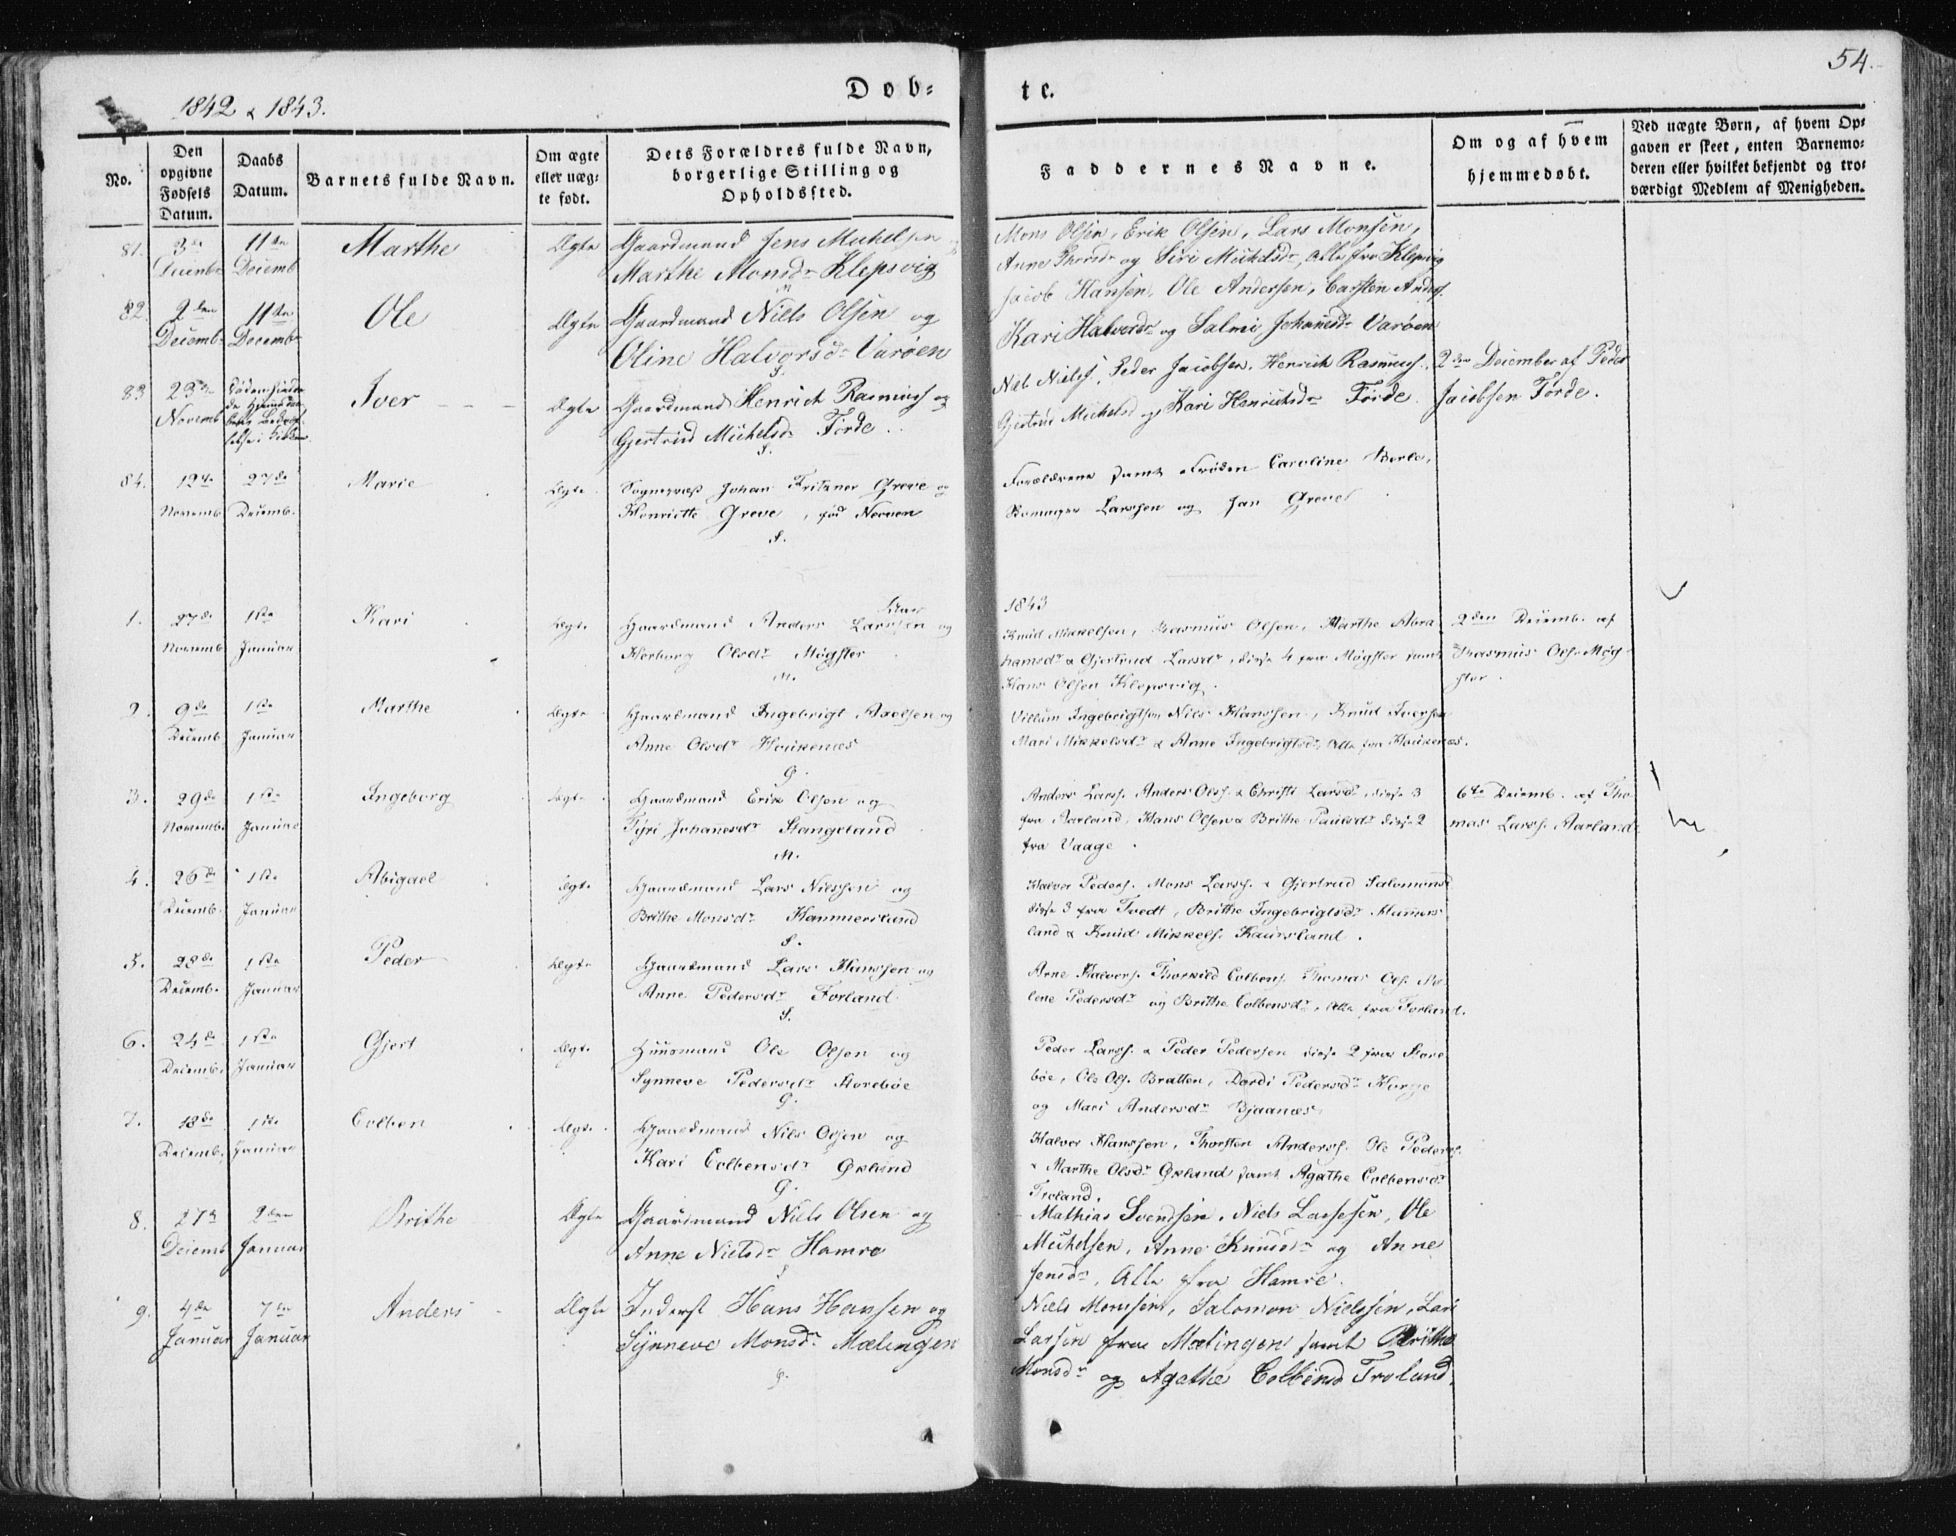 54.
1842 & 1843.
Døb=
te.
No.
Den opgivne Fødsels Datum.
Daabs Datum.
Barnets fulde Navn.
Om ægte eller uæg= te født.
Dets Forældres fulde Navn, borgerlige Stilling og Opholdssted.
Faddernes Navne.
Om og af hvem hjemmedøbt.
Ved uægte Børn, af hvem Op= gaven er skeet, enten Barnemo= deren eller hvilket bekjendt og tro= værdigt Medlem af Menigheden.
81. 3de Decembr 11te Decemb Marthe Ægte Gaardmand Jens Michelsen
Marthe Monsdr Klepsvig
Mons Olsen, Erik Olsen, Lars Monsen,
Anne Thorsdr og Siri Michelsdr, Alle fra Klepsvig
82. 2den Decemb 11te Decembr Ole Ægte Gaardmand Niels Olsen og
Oline Halvorsdr Varøen
Jacob Hansen, Ole Andersen, Carsten Anders.
Kari Halvorsdr og Salmi Johanesdr Varøen
83 23de Novemb Iver Ægte Gaardmand Henrich Rasmuss og
Gjertrud Michelsdr Førde.
Niels Nielss, Peder Jacobsen, Henrich Rasmuss.
Gjertrud Michelsd og Kari Henrichsdr Førde.
2den December af Peder
Jacobsen Førde.
84. 12te Novemb. 27de Decemb. Marie Ægte Sognepræst Johan Fritzner Greve og
Henriette Greve, fød Neoven
Forældrene samt Frøken Caroline Berle,
Larssen og Jan Greve
1843
1. 27de Novemb 1ste Januar Kari Ægte Gaardmand Anders Larssen og
Herborg Olsdr Møgster
Knud Mikkelsen, Rasmus Olsen, Marthe Abra
hamsdr & Gjertrud Larsdr, disse 4 fra Møgster samt
Hans Olsen Klepsvig.
2den Decemb. af
Rasmus Ols. Møg-
ster.
2. 9de Decemb 1ste Januar Marthe Ægte Gaardmand Ingebrigt Axelsen og
Anne Olsdr Houkenæs
Villum Ingebrigtsen, Nils Hanssen, Knud Iversen
Mari Mikkelsdr & Anne Ingebrigtsdr, Alle fra Houkenæs.
3. 29de Novemb. 1ste Januar Ingeborg Ægte Gaardmand Erik Olsen og
Tyri Johanesdr Stangeland
Anders Larss. Anders Olss. & Christi Larsdr, disse 3
fra Aarland, Hans Olsen & Brithe Paulsdr disse 2
fra Vaage.
6te Decemb. af Tho
mas Larss. Aarland
4. 26de Decemb. 1ste Januar Abigael Ægte Gaardmand Lars Nilssen og
Brithe Monsdr Hammersland
Halvor Peders. Mons Larss. & Gjertrud Salomonsd
disse 3 fra Tvedt, Brithe Ingebrigtsdr Hamers
land & Knud Mikkels. Kaursland.
5. 28de Decemb. 1ste Januar Peder Ægte Gaardmand Lars Hanssen og
Anne Pedersdr Forland
Arne Halvors. Thorkild Colbens. Thomas Ols. Ma
lene Pedersdr og Brithe Colbensdr, Alle fra Forland.
6. 24de Decemb. 1ste Januar Gjert Ægte Huusmand Ole Olsen og
Synneve Pedersdr Storebøe
Peder Larss. & Peder Pedersen disse 2 fra Store
bøe, Ole Ols. Bratten, Dordi Pedersdr
og Mari Andersdr Bjaanæs
7. 18de Decemb. 1ste Januar Colben Ægte Gaardmand Nils Olsen og
Kari Colbensdr Økland
Halvor Hanssen, Thorsten Anderss. Ole Peders.
& Marthe Olsdr Økland samt Agathe Colbensdr
Troland.
8. 27d Decemb 2den Januar Brithe Ægte Gaardmand Niels Olsen og
Anne Nielsdr Hamre
Mathias Svendsen, Niels Larssen, Ole
Michelsen, Anne Knudsdr og Anne
Jensdr, Alle fra Hamre.
9. 4de Januar 7de Januar Anders Ægte Inderst Hans Hansen og
Synneve Monsdr Mælingen
Niels Monsen, Salomon Nielssen, Lars
Larsen fra Mælingen samt Brithe
Monsdr og Agathe Colbensd Troland.